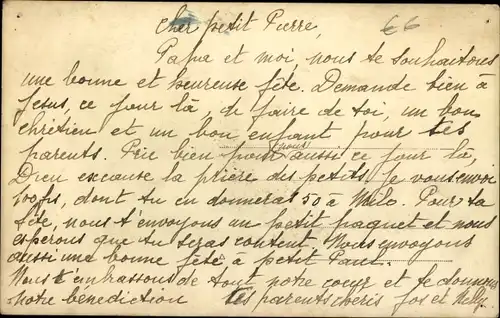 Cher petit Pierre,
66
Papa et moi, nous te souhaitons
une bonne et heureuse fête. Demande bien à
Jesus, ce jour là, de faire de toi, un bon
chrétien et un bon enfant pour tes
parents. Prie bien pour nous aussi ce jour là,
Dieu exauce la prière des petits. Je vous envoie
100 frs, dont tu en donneras 50 à Mile. Pour ta
fête, nous t'envoyons un petit paquet et nous
esperons que tu seras content. Nous envoyons
aussi une bonne fête à petit Paul.
Nous t'embrassons de tout notre coeur et te donnons
notre bénediction tes parents cheris Jos et